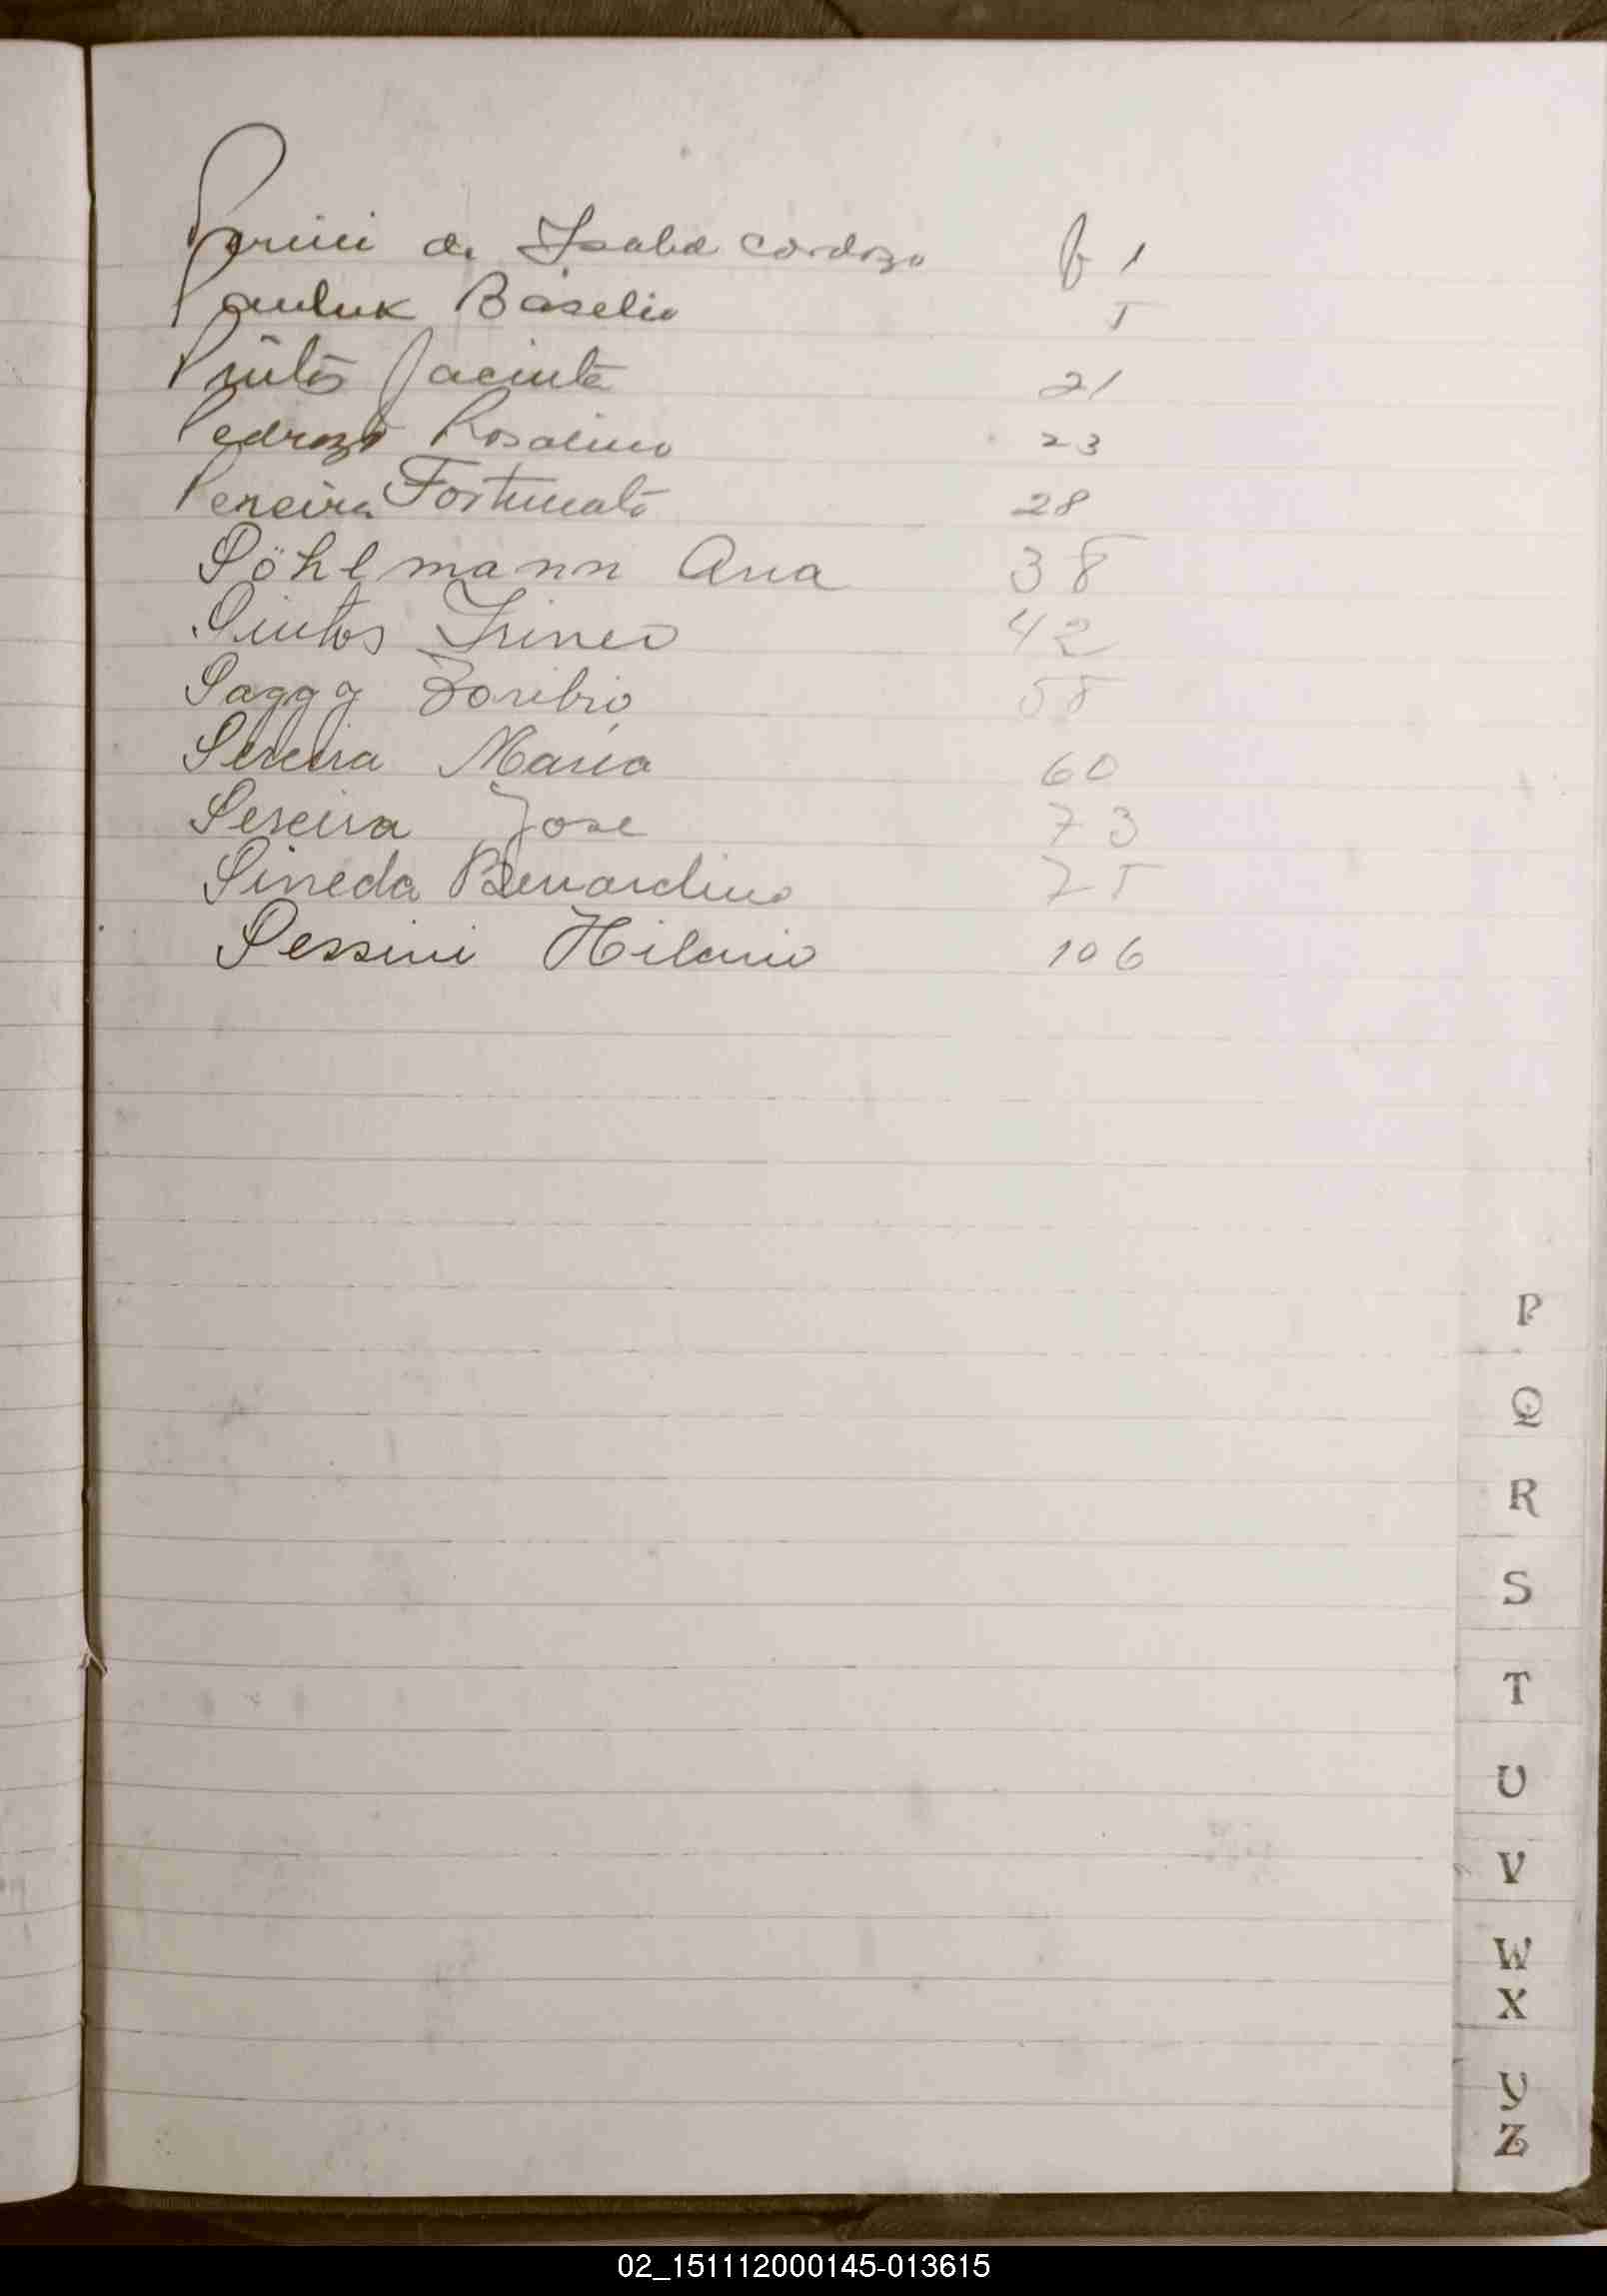 Perini de Isabel Cardozo f 1
Pauluk Baselio 5
Pintos Jacinto 21
Pedrozo Rosalino 23
Pereira Fortunato 28
Pöhlmann Ana 38
Pintos Irineo 42
Paggy Toribio 58
Pereira Maria 60
Pereira Jose 73
Pineda Bernardino 75
Pessini Hilario 106
P
Q
R
S
T
U
V
W
X
Y
Z
02_151112000145-013615